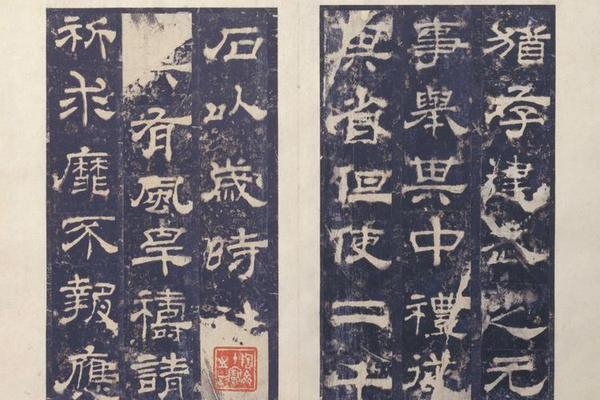 猶存建武之元
事舉其中禮從
其省但使二千
石以歲時
其有風旱禱請
祈求靡不報應